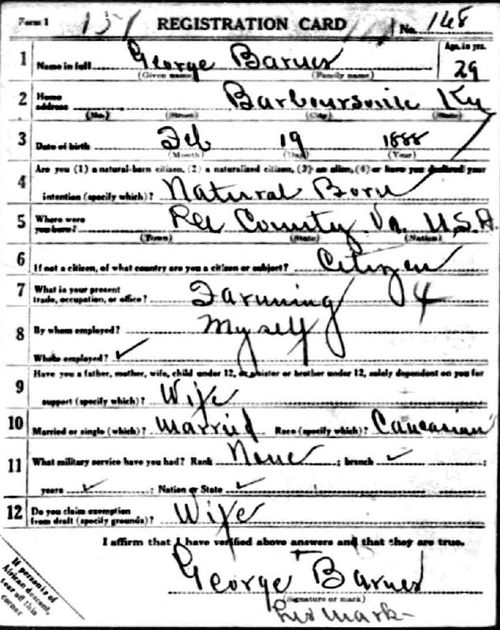 Form 1 157 REGISTRATION CARD No. 148
1 Name in full George Barnes Age, in yrs. 29
(Given name) (Family name)
2 Home address Barboursville Ky
(No.) (Street) (City) (State)
3 Date of birth Feb 19 1888
(Month) (Day) (Year)
4 Are you (1) a natural-born citizen, (2) a naturalized citizen, (3) an alien, (4) or have you declared your
intention (specify which)? Natural Born
5 Where were you born? Lee County Va. U.S.A
(Town) (State) (Nation)
6 If not a citizen, of what country are you a citizen or subject? Citizen
7 What is your present trade, occupation, or office? Farming 4
8 By whom employed? Myself
Where employed? ✓
9 Have you a father, mother, wife, child under 12, or a sister or brother under 12, solely dependent on you for
support (specify which)? Wife
10 Married or single (which)? Married Race (specify which)? Caucasian
11 What military service have you had? Rank None ; branch ✓ ;
years ✓ ; Nation or State ✓
12 Do you claim exemption from draft (specify grounds)? Wife
I affirm that I have verified above answers and that they are true.
George Barnes
(Signature or mark)
his mark
If person is of African descent, tear off this corner